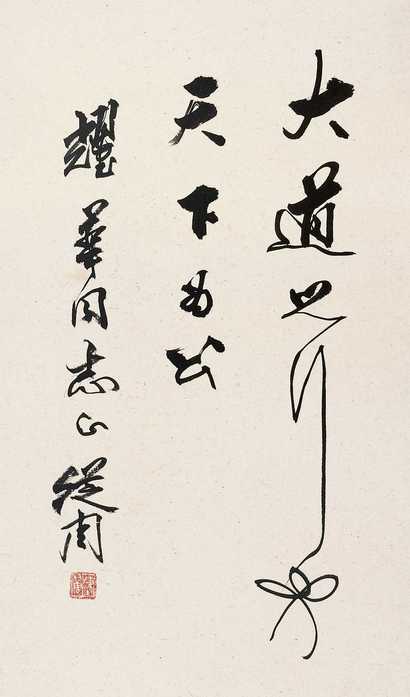 大道之行也
天下为公
耀華同志正 從周